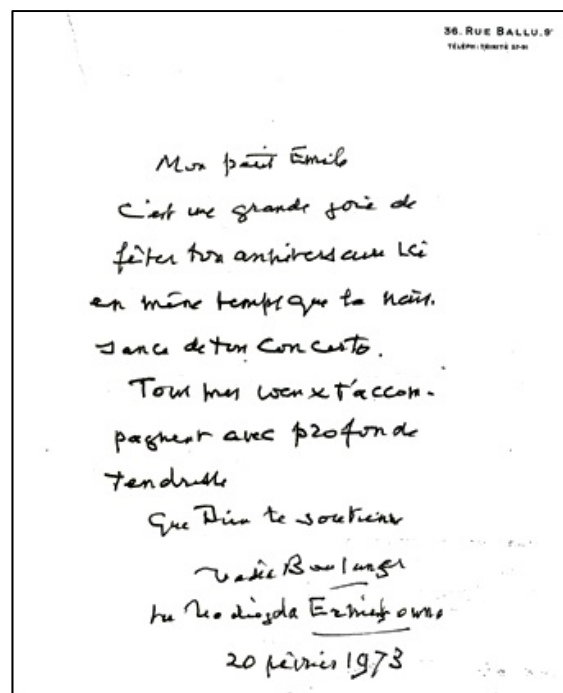 36. RUE BALLU. 9ᵉ
TÉLÉPH: TRINITÉ
Mon petit Émile
C'est une grande joie de
fêter ton anniversaire ici
en même temps que la nais-
sance de ton Concerto.
Tous mes vœux t'accom-
pagnent avec profonde
tendresse
Que Dieu te soutienne
Nadia Boulanger
20 février 1973